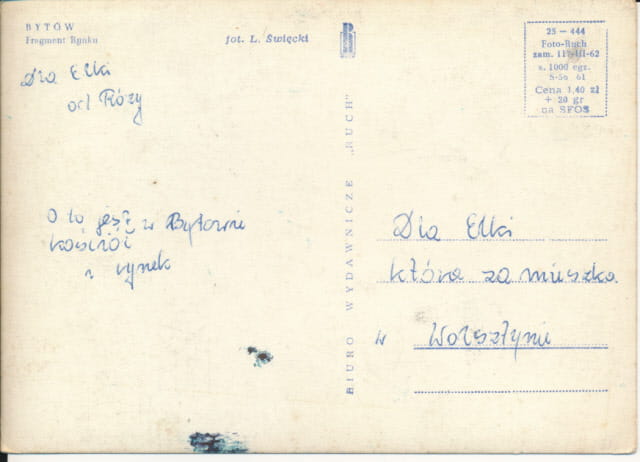 BYTÓW
Fragment Rynku
fot. L. Święcki
Dla Elki
od Róży
O to jest w Bytowie
kościół
i rynek
BIURO WYDAWNICZE „RUCH"
25 — 444
Foto-Ruch
zam. 117-III-62
n. 1000 egz.
S-56 61
Cena 1,40 zł
+ 20 gr
na SFOS
Dla Elki
która zamieszka
w Wolsztynie